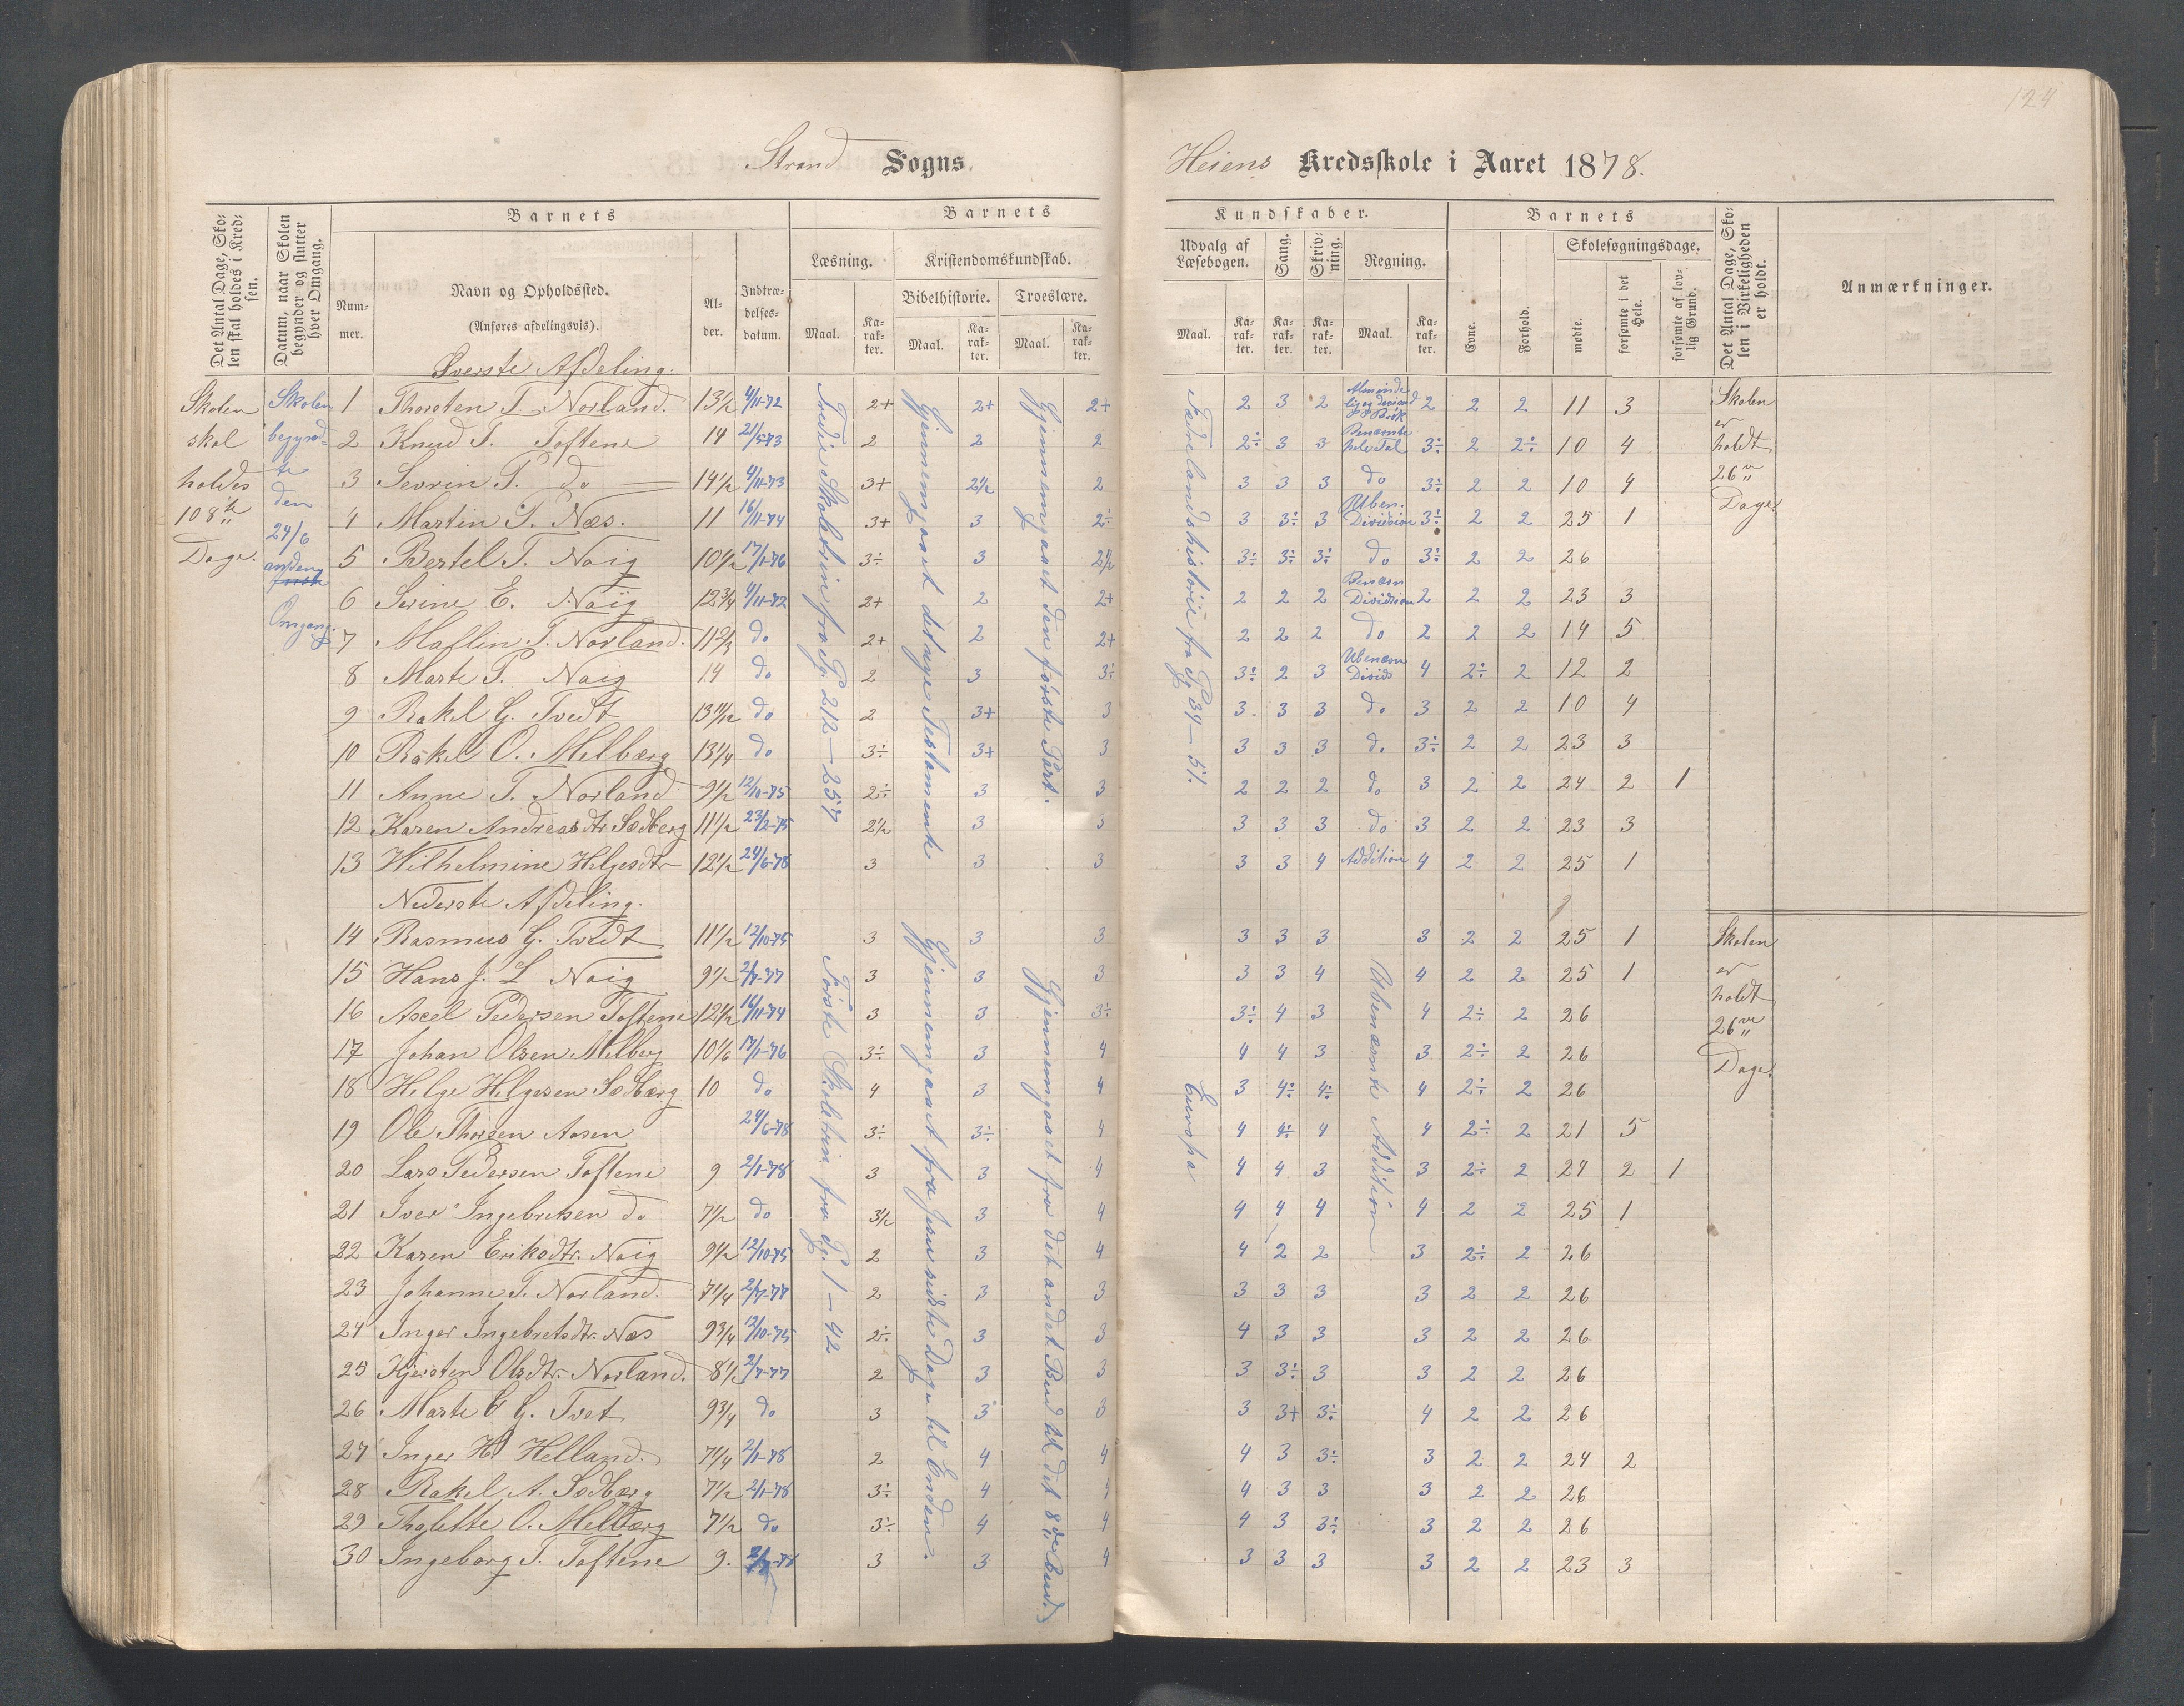 124
Strand Sogns. Heiens Kredsskole i Aaret 1878.
Det Antal Dage, Skolen skal holdes i Kredsen.
Datum, naar Skolen begynder og slutter hver Omgang.
Barnets
Nummer.
Navn og Opholdssted.
(Anføres afdelingsvis).
Alder.
Indtrædelsesdatum.
Barnets Kundskaber.
Læsning. Maal. Karakter.
Kristendomskundskab.
Bibelhistorie. Maal. Karakter.
Troeslære. Maal. Karakter.
Udvalg af Læsebogen. Maal. Karakter.
Sang. Karakter.
Skrivning. Karakter.
Regning. Maal. Karakter.
Barnets
Evne.
Forhold.
Skolesøgningsdage.
mødte.
forsømte i det Hele.
forsømte af lovlig Grund.
Det Antal Dage, Skolen i Virkeligheden er holdt.
Anmærkninger.
Skolen skal holdes 108 Dage.
Skolen begyndte den 24/6 anden Omgang.
Øverste Afdeling.
Tredie Skoletrin fra Pg. 212–257
Gjennemgaaet det nye Testamente
Gjennemgaaet den første Part.
Fædrelandshistorie fra Pg 34–51.
1 Thorsten T. Norland. 13½ 4/11-72 2+ 2+ 2+ 2 3 2 2 2 2 11 3
2 Knud T. Toftene 14 21/5-73 2 2 2 2÷ 3 3 Benævnte hele Tal 3÷ 2 2÷ 10 4
3 Sevrin P. do 14½ 4/11-73 3+ 2½ 2 3 3 3 do 3÷ 2 2 10 4
4 Martin T. Næs. 11 16/11-74 3+ 3 2÷ 3 3÷ 3 Uben. Division 3÷ 2 2 25 1
5 Bertel T. Noig 10½ 17/1-76 3÷ 3 2½ 3÷ 3÷ 3÷ do 3÷ 2 2 26
6 Serine E. Noig 12¾ 4/11-72 2+ 2 2+ 2 2 2 Benævn Division 2 2 2 23 3
7 Maflin T. Norland. 11⅔ do 2+ 2 2+ 2 2 2 do 2 2 2 14 5
8 Marte P. Noig 14 do 2 3 3÷ 3÷ 2 3 Ubenævn Divids 4 2÷ 2 12 2
9 Rakel G. Tvedt 13 11/12 do 2 3+ 3 3 3 3 do 3 2 2 10 4
10 Rakel O. Melbærg 13¼ do 3÷ 3+ 3 3 3 3 do 3÷ 2 2 23 3
11 Anne T. Norland 9½ 12/10-75 2÷ 3 3 2 2 2 do 3 2 2 24 2 1
12 Karen Andreasdtr Sødberg 11½ 23/2-75 2½ 3 3 3 3 3 do 3 2 2 23 3
13 Wilhelmine Helgesdtr 12½ 24/6-78 3 3 3 3 3 4 Addition 4 2 2 25 1
Skolen er holdt 26 Dage.
Nederste Afdeling.
Første Skoletrin fra Pg. 1–42
Gjennemgaaet fra Jesu sidste Dage til Enden.
Gjennemgaaet fra det andet Bud til det 8de Bud.
Europa
Ubenævnte Addition
14 Rasmus G. Tvedt 11½ 12/10-75 3 3 3 3 3 3 3 2 2 25 1
15 Hans J. L Noig 9½ 2/7-77 3 3 3 3 3 4 4 2 2 25 1
16 Axel Pedersen Toftene 12½ 16/11-74 3 3 3÷ 3÷ 4 3 4 2÷ 2 26
17 Johan Olsen Melberg 10⅙ 17/1-76 3÷ 3 4 4 4 3 3 2÷ 2 26
18 Helge Helgesen Sødbærg 10 do 4 3 4 3 4÷ 4÷ 4 2÷ 2 26
19 Ole Thorsen Aasen 24/6-78 3÷ 3÷ 4 4 4÷ 4 4 2÷ 2 21 5
20 Lars Pedersen Toftene 9 2/1-78 3 3 4 4 4 3 3 2÷ 2 24 2 1
21 Iver Ingebretsen do 7½ do 3½ 3 4 4 4 4 4 2 2 25 1
22 Karen Eriksdtr. Noig 9½ 12/10-75 2 3 4 4 2 2 3 2÷ 2 26
23 Johanne T. Norland. 7¼ 2/7-77 2 3 3 3 3 3 3 2 2 26
24 Inger Ingebretsdtr. Næs 9¾ 12/10-75 2÷ 3 3 4 3 3 3 2 2 26
25 Kjersten Olsdtr. Norland. 8½ 2/7-77 2 3 3 3 3÷ 3 3 2 2 26
26 Marte G. Tvet 9¾ do 3 3 3 3 3+ 3÷ 4 2 2 26
27 Inger H. Helland. 7¼ 2/1-78 2 4 4 4 3 3÷ 3 2 2 24 2
28 Rakel A. Sødbærg 7½ 2/1-78 3÷ 4 4 4 3 3 3 2 2 26
29 Thalette O. Melbærg 7½ do 3÷ 4 4 4 3 3÷ 3 2 2 26
30 Ingeborg T. Toftene 9. 3 3 4 3 3 3 3 2 2 23 3
Skolen er holdt 26 Dage.